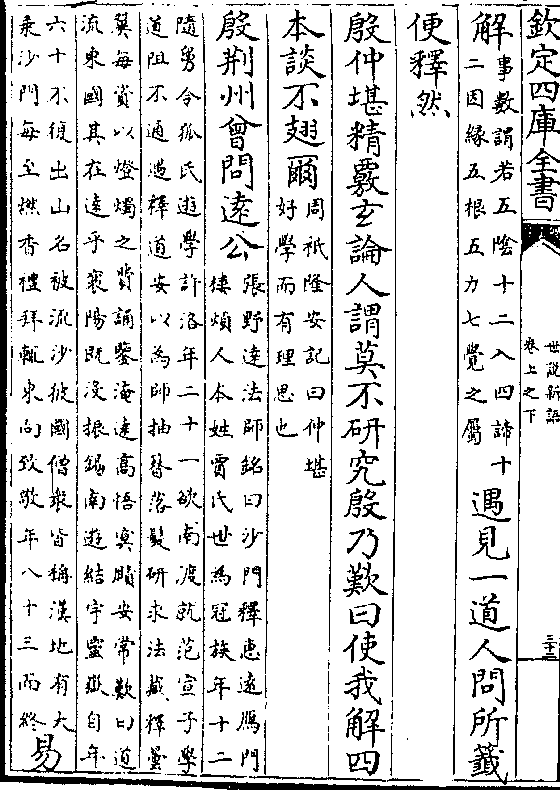 欽定四庫全書
世說新語
卷上之下
三十三
解事數謂若五陰十二入四諦十
二因緣五根五力七覺之屬遇見一道人問所籖
便釋然
殷仲堪精覈玄論人謂莫不研究殷乃歎曰使我解四
本談不翅爾周祇隆安記曰仲堪
好學而有理思也
殷荆州曾問逺公張野逺法師銘曰沙門釋惠逺鴈門
樓煩人本姓賈氏世為冠族年十二
隨舅令狐氏遊學許洛年二十一欲南渡就范宣子學
道阻不通遇釋道安以為師抽簪落髮研求法藏釋曇
翼每資以燈燭之費誦鑒淹逺高悟冥賾安常歎曰道
流東國其在逺乎襄陽既没振錫南遊結宇靈嶽自年
六十不復出山名被流沙彼國僧衆皆稱漢地有大
乘沙門每至㸐香禮拜輒東向致敬年八十三而終易